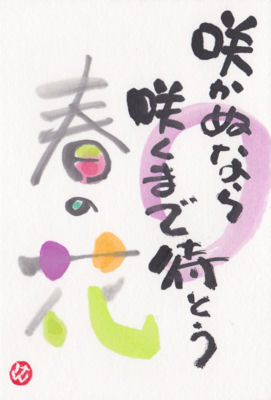 咲かぬなら
咲くまで待とう
春の花